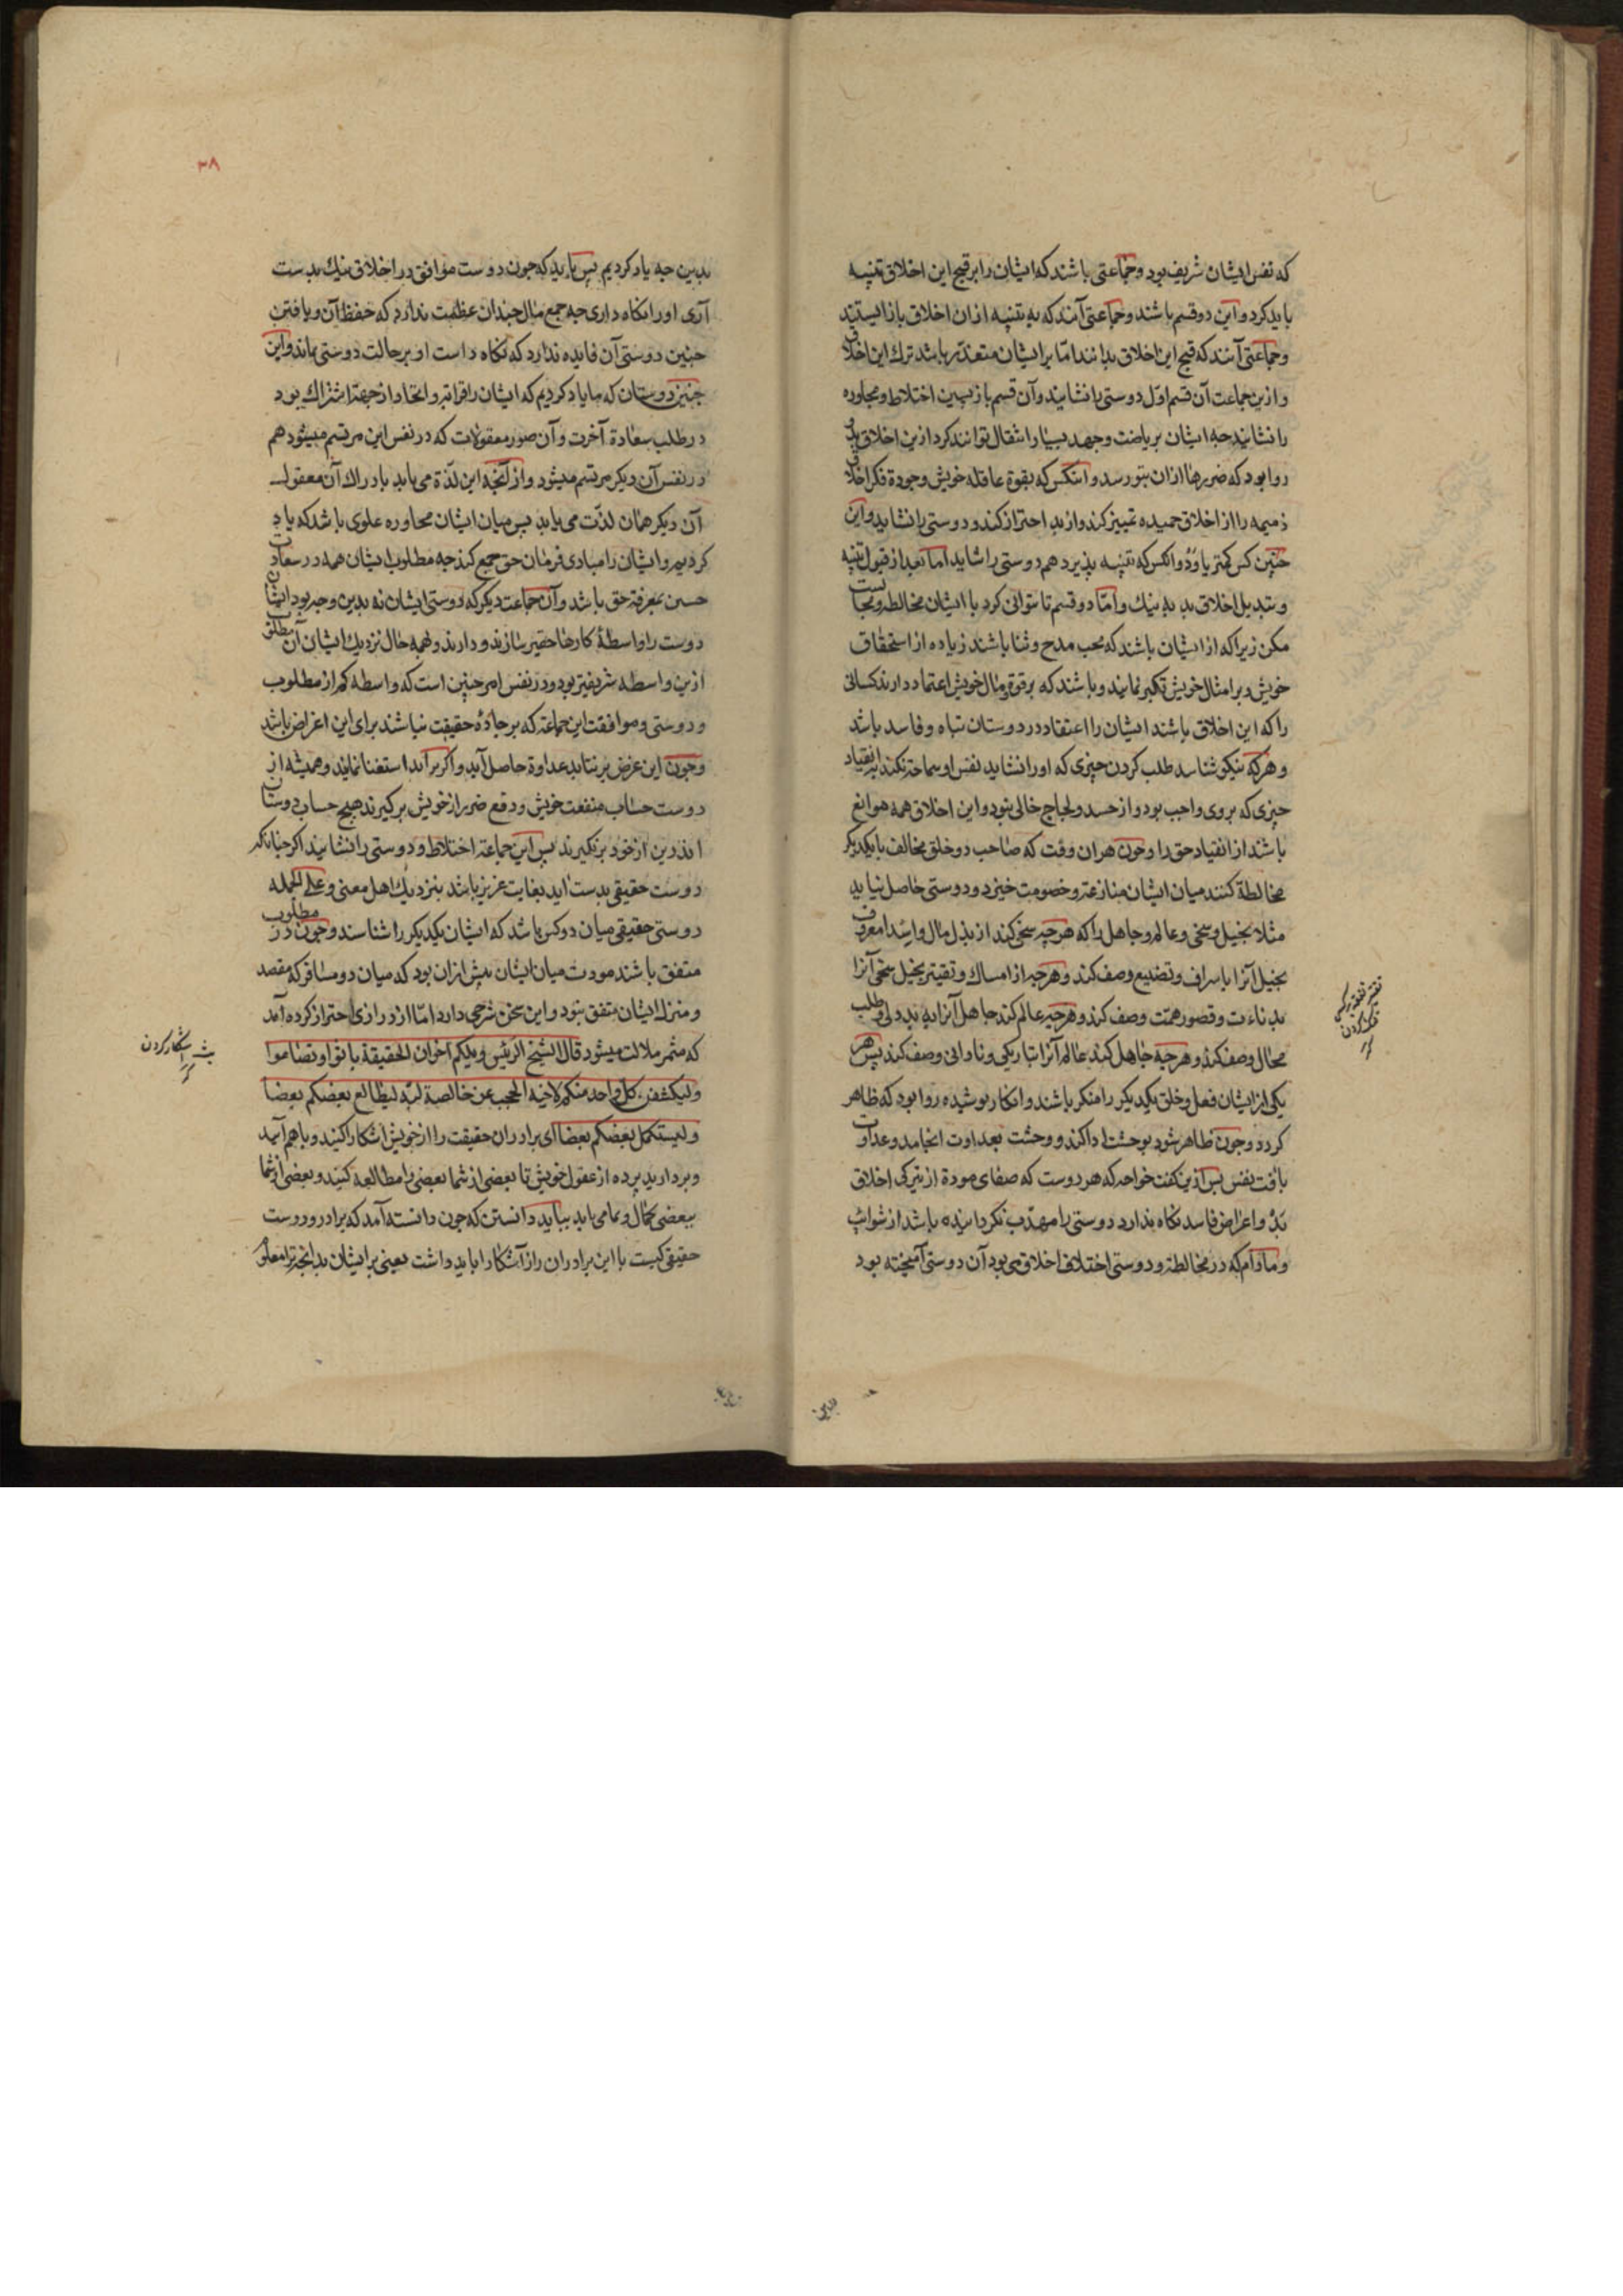 که نفس ایشان شریف بود و جماعتی باشند که ایشان را بر قبح این اخلاق تنبیه
باید کرد و این دو قسم باشند و جماعتی آنند که به تنبیه ازان اخلاق باز ایستند
و جماعتی آنند که قبح این اخلاق بدانند امّا بر ایشان متعذّر باشد ترک این اخلاق
و ازین جماعت آن قسم اوّل دوستی را شایند و آن قسم بازپسین اختلاط و مجاوره
را نشایند جه ایشان بریاضت و جهد بسیار انتقال توانند کرد ازین اخلاق
روا بود که ضررها ازان بتو رسد و انکس که بقوة عاقله خویش وجودة فکر اخلاق
ذمیمه را از اخلاق حمیده تمییز کند و از بد احتراز کند و دوستی را شاید و این
جنین کس کمتر یاود و انکس که تنبیه پذیرد هم دوستی را شاید اما بعد از قبول تنبیه
و تبدیل اخلاق بد به نیک و امّا دو قسم تا توانی کرد با ایشان مخالطه و مجالست
مکن زیرا که از ایشان باشند که محب مدح و ثنا باشند زیاده از استحقاق
خویش و بر امثال خویش تکبر نمایند و باشند که بر قوة و مال خویش اعتماد دارند کسانی
را که این اخلاق باشند ایشان را اعتقاد در دوستان تباه و فاسد باشد
و هرکه نیکو شناسد طلب کردن جیزی که او را نشاید نفس او مسامحت نکند بر انقیاد
جیزی که بروی واجب بود و از حسد و لجاج خالی نبود و این اخلاق همه موانع
باشند از انقیاد حق را و جون هران وقت که صاحب دو خلق مخالف با یکدیگر
مخالطة کنند میان ایشان منازعة و خصومت خیزد و دوستی حاصل نیاید
مثلا بخیل و سخی و عالم و جاهل را که هرجه سخی کند از بذل مال و اسدا معروف
بخیل آنرا باسراف و تضییع وصف کند و هرجه از امساک و تقتیر بخیل سخی آنرا
بدناءت و قصور همّت وصف کند و هرجه عالم کند جاهل آنرا به بددلی و طلب
محال وصف کند و هرجه جاهل کند عالم آنرا بتاریکی و نادانی وصف کند پس هر
یکی از ایشان فعل و خلق یکدیگر را منکر باشند و انکار پوشیده روا بود که ظاهر
کردد و جون ظاهر شود بوحشت ادا کند و وحشت بعداوت انجامد و عداوت
بافت نفس پس ازین کفت خواجه که هر دوست که صفای مودة از تیرکی اخلاق
بد و اعراض فاسد نکاه ندارد دوستی را مهذّب نکردانیده باشد از شوائب
و مادام که در مخالطة و دوستی اختلاف اخلاق می بود آن دوستی آمیخته بود
نفقه بر کسی تنک کردن
۳۸
بدین جه یاد کردیم پس باید که جون دوست موافق در اخلاق نیک بدست
آری او را نکاه داری جه جمع مال جندان عظمت ندارد که حفظ آن و یافتن
جنین دوستی آن فایده ندارد که نکاه داست او بر حالت دوستی ماند و این
جنین دوستان که ما یاد کردیم که ایشان را قرابة و اتحاد از جهة اشتراک بود
در طلب سعادة آخرت و آن صور معقولات که در نفس این مرتسم میشود هم
در نفس آن دیکر مرتسم میشود و از آنجه این لذّة می یابد بادراک آن معقول
آن دیکر همان لذّت می یابد پس میان ایشان مجاوره علوی باشد که یاد
کردیم و ایشان را مبادی فرمان حق جمع کند جه مطلوب ایشان همه در سعادت
حسین بمعرفة حق باشد و آن جماعت دیکر که دوستی ایشان نه بدین وجه بود ایشان
دوست را واسطۀ کارها حقیر سازند و دارند و همه حال نزدیک ایشان آن مطلوب
ازین واسطه شریفتر بود و در نفس امر جنین است که واسطه کم از مطلوب
و دوستی و موافقت این جماعة که بر جادۀ حقیقت نباشند برای این اغراض باشد
و جون این غرض برنتابد عداوة حاصل آید و اکر برآید استغنا نمایند و همیشه از
دوست حساب منفعت خویش و دفع ضرر از خویش برکیرند هیچ حساب دوستان
اندرین از خود برنکیرند پس این جماعة اختلاط و دوستی را نشایند اکر جنانکه
دوست حقیقی بدست اید بغایت عزیز باشد بنزدیک اهل معنی و علی الجمله
دوستی حقیقی میان دو کس باشد که ایشان یکدیکر را شناسند و جون در مطلوب
متفق باشند مودت میان ایشان بیش ازان بود که میان دو مسافر که مقصد
و منزل ایشان متفق بود و این سخن شرحی دارد امّا از درازی احتراز کرده آمد
که مثمر ملالت میشود قال الشیخ الرئیس ویلکم اخوان الحقیقة باثوا و تضاموا
ولیکشفن کل واحد منکم لاخیه الحجب عن خالصة لبّه لیطالع بعضکم بعضا
ولیستکمل بعضکم بعضا ای برادران حقیقت را از خویش اشکارا کنید و باهم آیید
و بردارید پرده از عقول خویش تا بعضی از شما بعضی را مطالعه کنید و بعضی از شما
ببعضی کمال و تمامی یابد بباید دانستن که جون دانسته آمد که برادر و دوست
حقیقی کیست با این برادران راز آشکارا باید داشت یعنی بر ایشان بدانجه ترا معلو
بث اشکار کردن